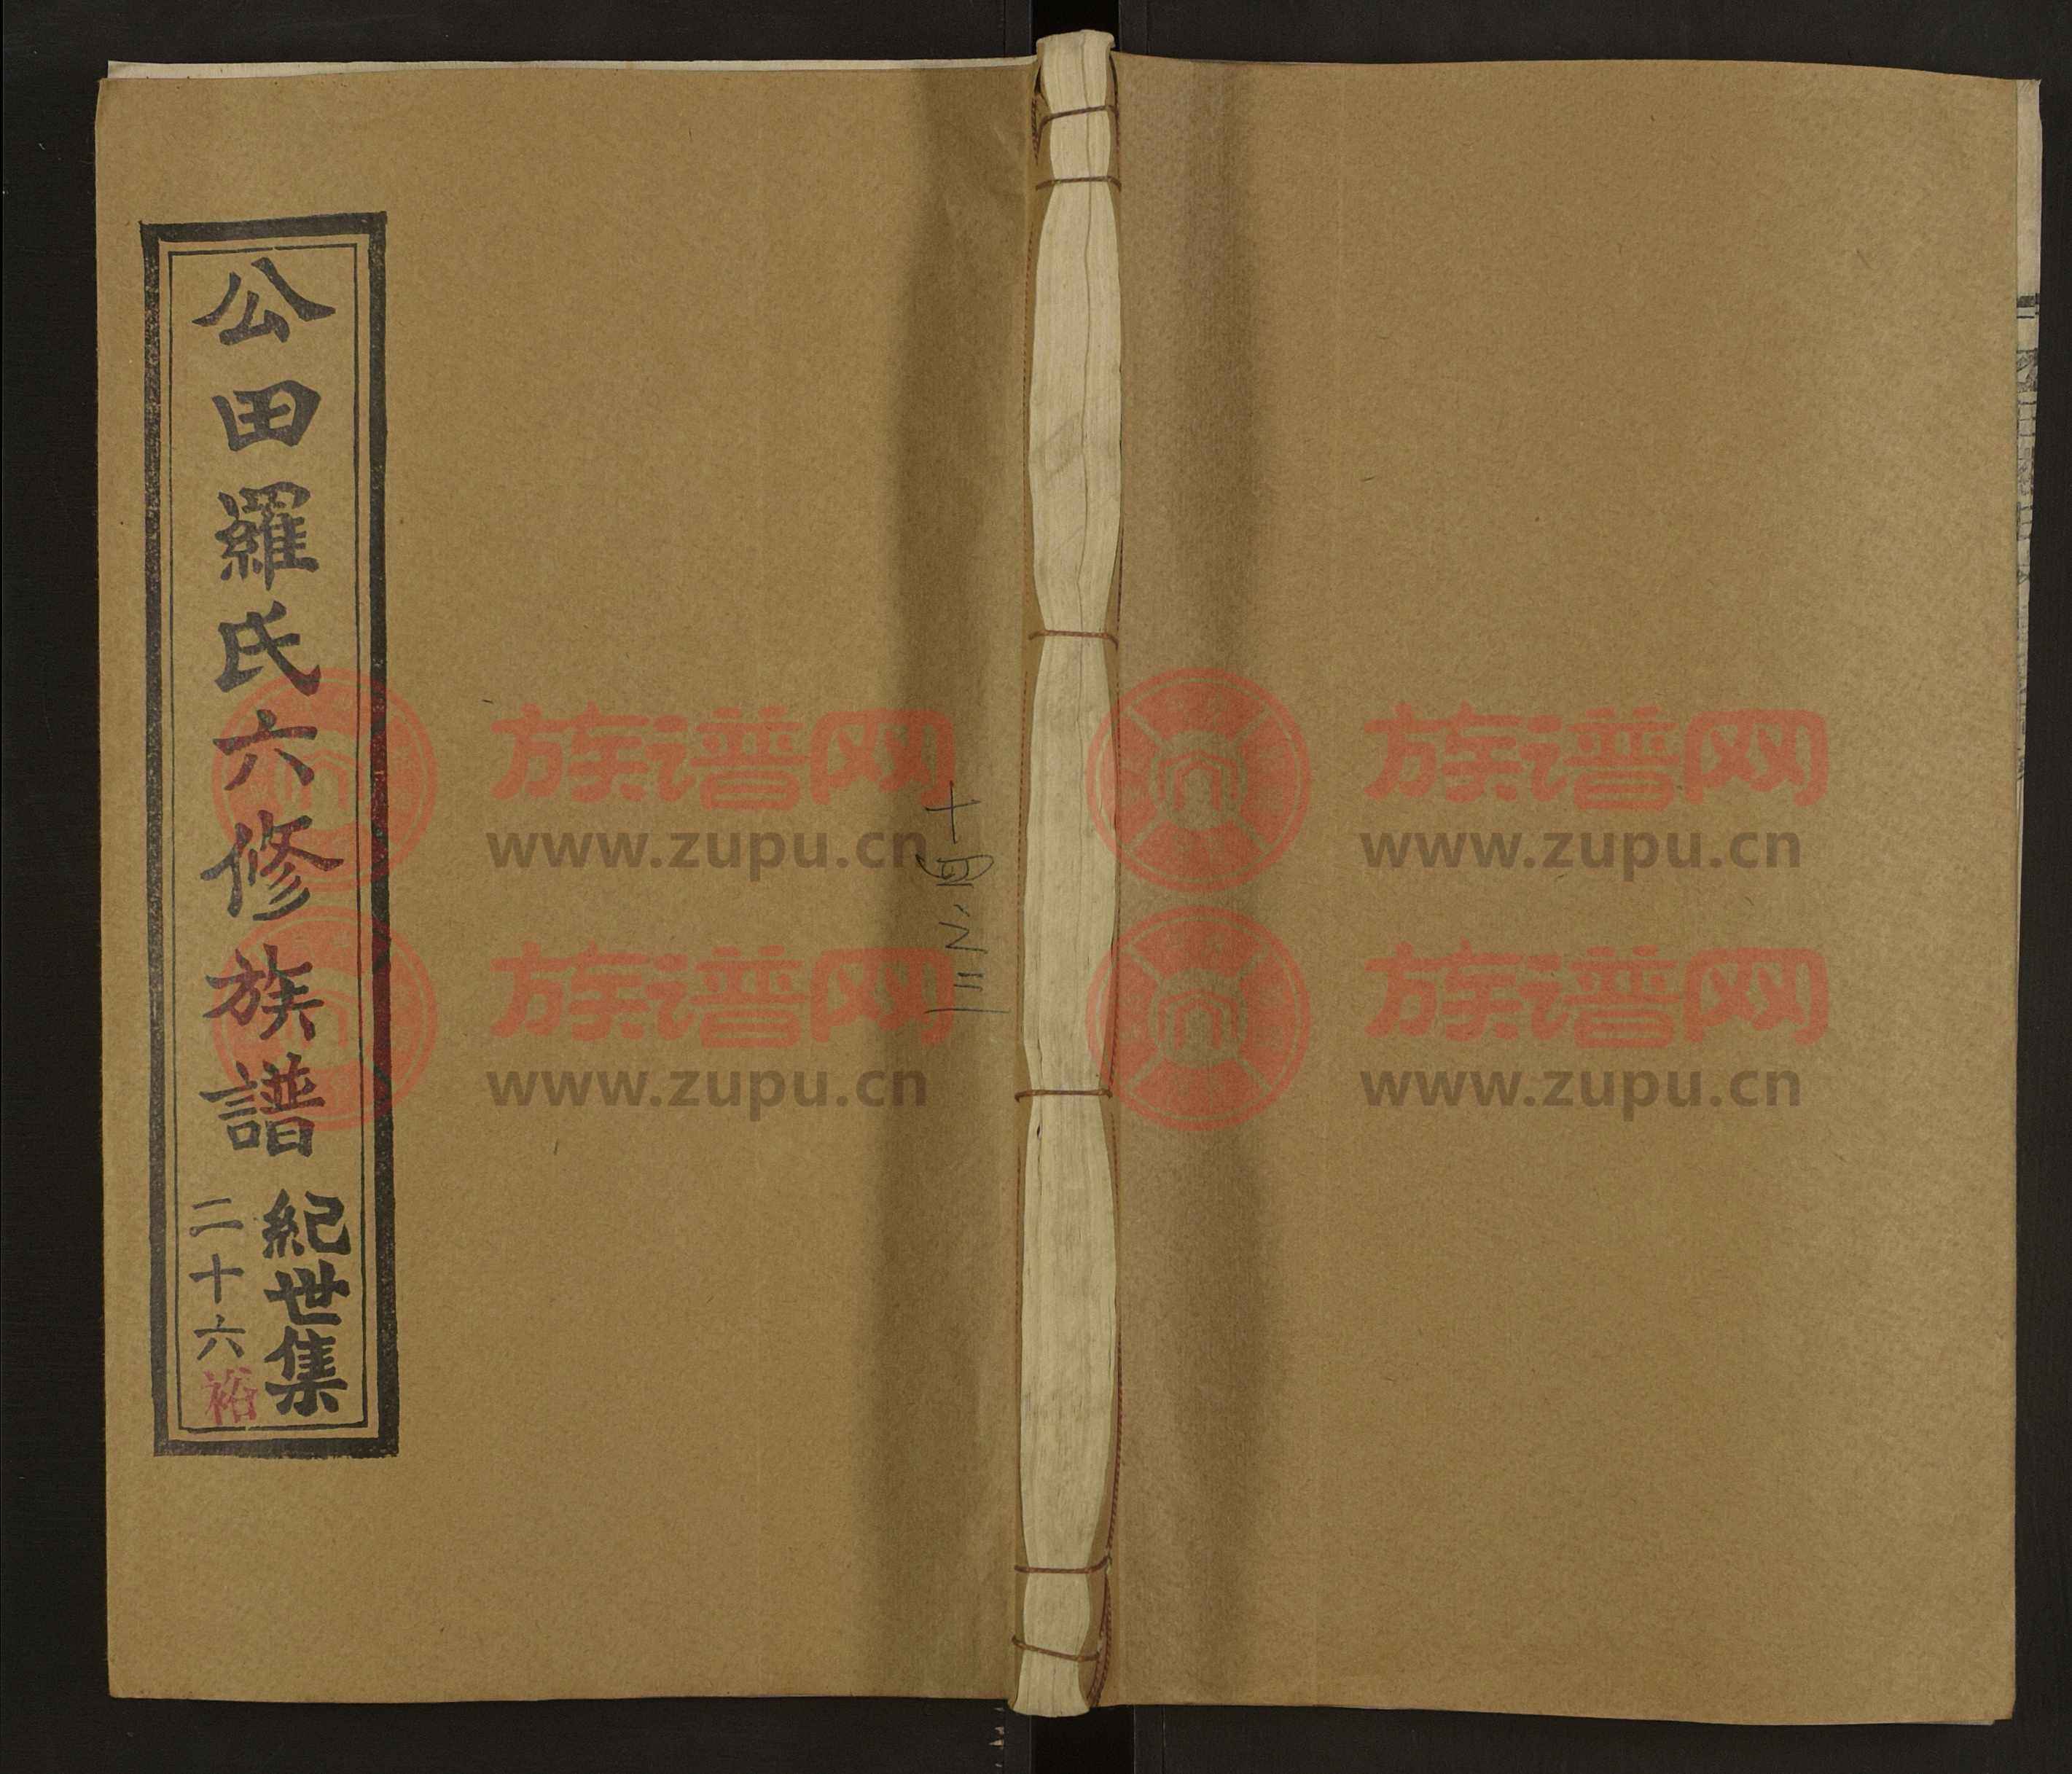 公田羅氏六修族譜
紀世集
二十六
裕
十四之三
族谱网
www.zupu.cn
族谱网
www.zupu.cn
族谱网
www.zupu.cn
族谱网
www.zupu.cn